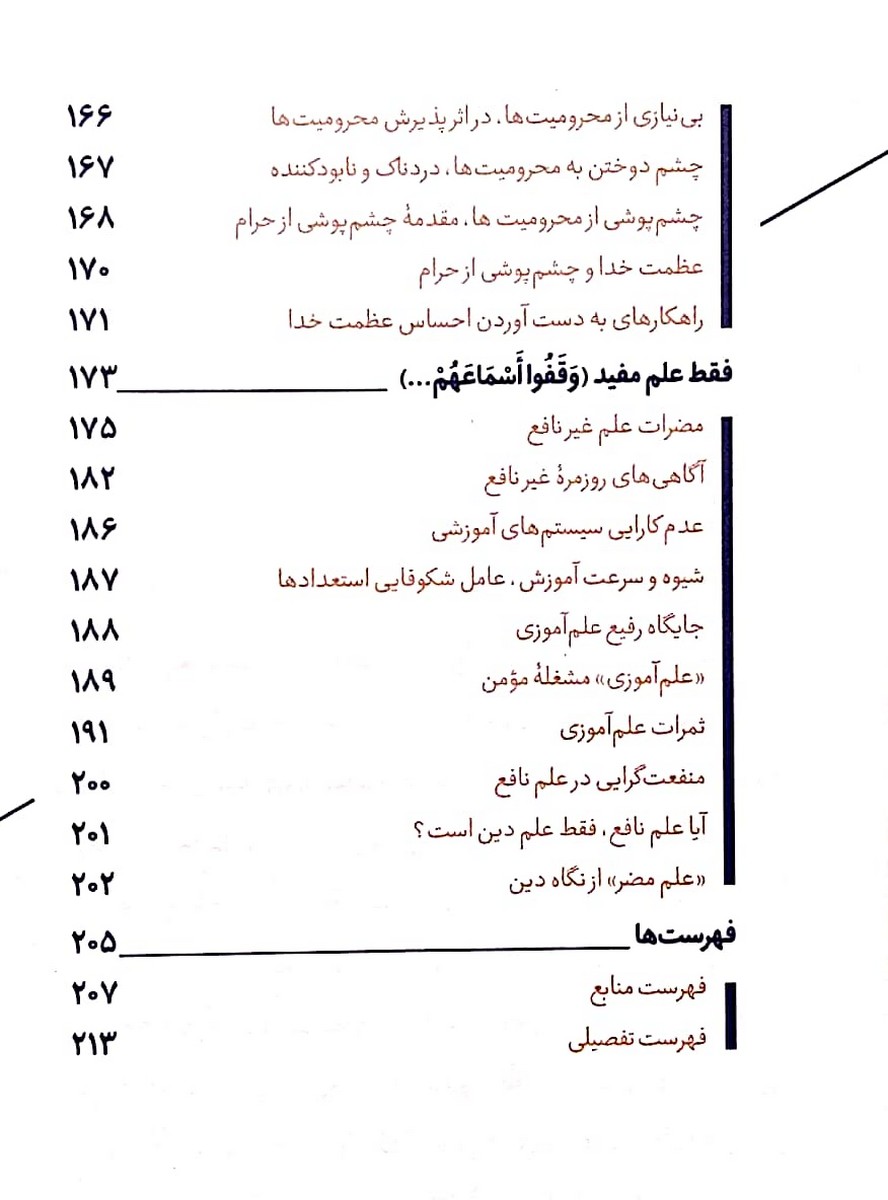 بی‌نیازی از محرومیت‌ها، در اثر پذیرش محرومیت‌ها ۱۶۶
چشم دوختن به محرومیت‌ها، دردناک و نابودکننده ۱۶۷
چشم‌پوشی از محرومیت ها، مقدمهٔ چشم‌پوشی از حرام ۱۶۸
عظمت خدا و چشم‌پوشی از حرام ۱۷۰
راهکارهای به دست آوردن احساس عظمت خدا ۱۷۱
فقط علم مفید (وَقَفُوا أَسْمَاعَهُمْ...) ۱۷۳
مضرات علم غیر نافع ۱۷۵
آگاهی‌های روزمرهٔ غیر نافع ۱۸۲
عدم کارایی سیستم‌های آموزشی ۱۸۶
شیوه و سرعت آموزش، عامل شکوفایی استعدادها ۱۸۷
جایگاه رفیع علم‌آموزی ۱۸۸
«علم‌آموزی» مشغلهٔ مؤمن ۱۸۹
ثمرات علم‌آموزی ۱۹۱
منفعت‌گرایی در علم نافع ۲۰۰
آیا علم نافع، فقط علم دین است؟ ۲۰۱
«علم مضر» از نگاه دین ۲۰۲
فهرست‌ها ۲۰۵
فهرست منابع ۲۰۷
فهرست تفصیلی ۲۱۳